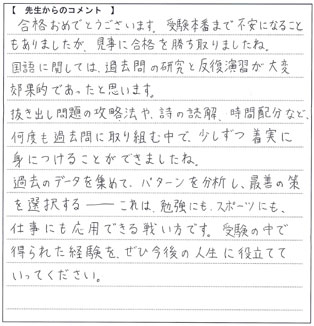 【 先生からのコメント 】
合格おめでとうございます。受験本番まで不安になること
もありましたが、見事に合格を勝ち取りましたね。
国語に関しては、過去問の研究と反復演習が大変
効果的であったと思います。
抜き出し問題の攻略法や、詩の読解、時間配分など、
何度も過去問に取り組む中で、少しずつ着実に
身につけることができましたね。
過去のデータを集めて、パターンを分析し、最善の策
を選択する ―― これは、勉強にも、スポーツにも、
仕事にも応用できる戦い方です。受験の中で
得られた経験を、ぜひ今後の人生に役立てて
いってください。